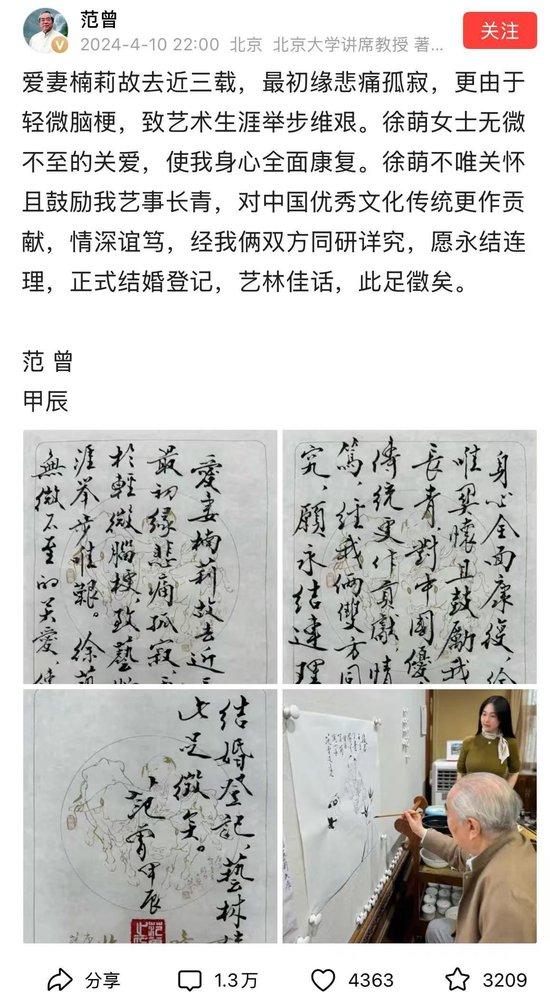 范曾
2024-4-10 22:00 北京 北京大学讲席教授 著...
关注
爱妻楠莉故去近三载，最初缘悲痛孤寂，更由于
轻微脑梗，致艺术生涯举步维艰。徐萌女士无微
不至的关爱，使我身心全面康复。徐萌不唯关怀
且鼓励我艺事长青，对中国优秀文化传统更作贡
献，情深谊笃，经我俩双方同研详究，愿永结连
理，正式结婚登记，艺林佳话，此足徵矣。
范 曾
甲辰
愛妻楠莉故去近三
最初缘悲痛孤寂
於輕微腦梗致藝
涯举步维艱。徐萌
無微不至的关爱，使
身心全面康復，徐
唯关懷且鼓勵我
長青，對中國優
傳統更作貢獻，情
篤，经我俩雙方同
究，願永结連理
结婚登记，藝林
此足徵矣。
范曾甲辰
分享
1.3万
4363
3209